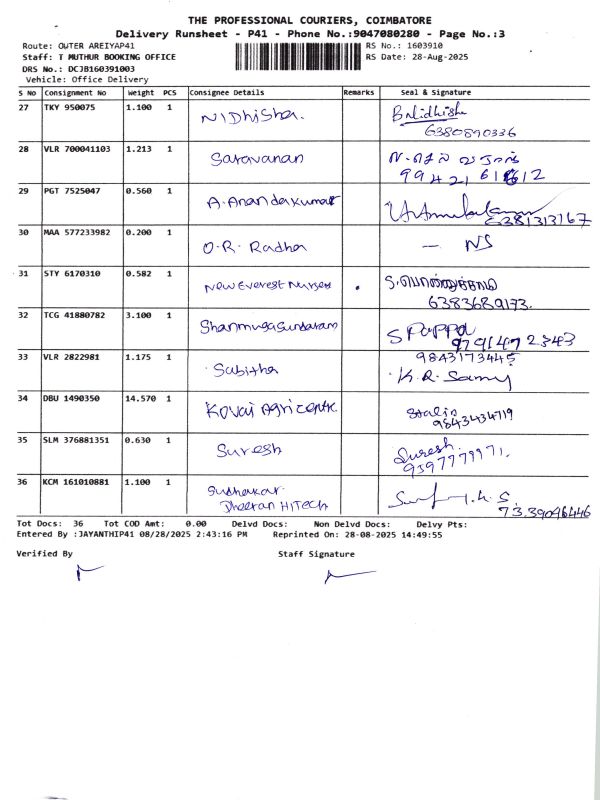 THE PROFESSIONAL COURIERS, COIMBATORE
Delivery Runsheet - P41 - Phone No.:9047080280 - Page No.:3
Route: OUTER AREIYAP41 RS No.: 1603910
Staff: T MUTHUR BOOKING OFFICE RS Date: 28-Aug-2025
DRS No.: DCJB160391003
Vehicle: Office Delivery
S No Consignment No Weight PCS Consignee Details Remarks Seal & Signature
27 TKY 950075 1.100 1 NIDhiSha.
6380890336
28 VLR 700041103 1.213 1 Saravanan
29 PGT 7525047 0.560 1 A. Anandakumar
6381313167
30 MAA 577233982 0.200 1 O.R. Radha — NS
31 STY 6170310 0.582 1 New Everest Nursery
6383689173.
32 TCG 41880782 3.100 1 Shanmugasundaram S Pappa
9791472343
33 VLR 2822981 1.175 1 Sabitha 9843173445
K.R. Samy
34 DBU 1490350 14.570 1 KOVAI Agri centre Stalin
9843434719
35 SLM 376881351 0.630 1 Suresh Suresh.
9397779971.
36 KCM 161010881 1.100 1 Sudhakar
Dheeran HITech 73.39096446
Tot Docs: 36 Tot COD Amt: 0.00 Delvd Docs: Non Delvd Docs: Delvy Pts:
Entered By :JAYANTHIP41 08/28/2025 2:43:16 PM Reprinted On: 28-08-2025 14:49:55
Verified By Staff Signature